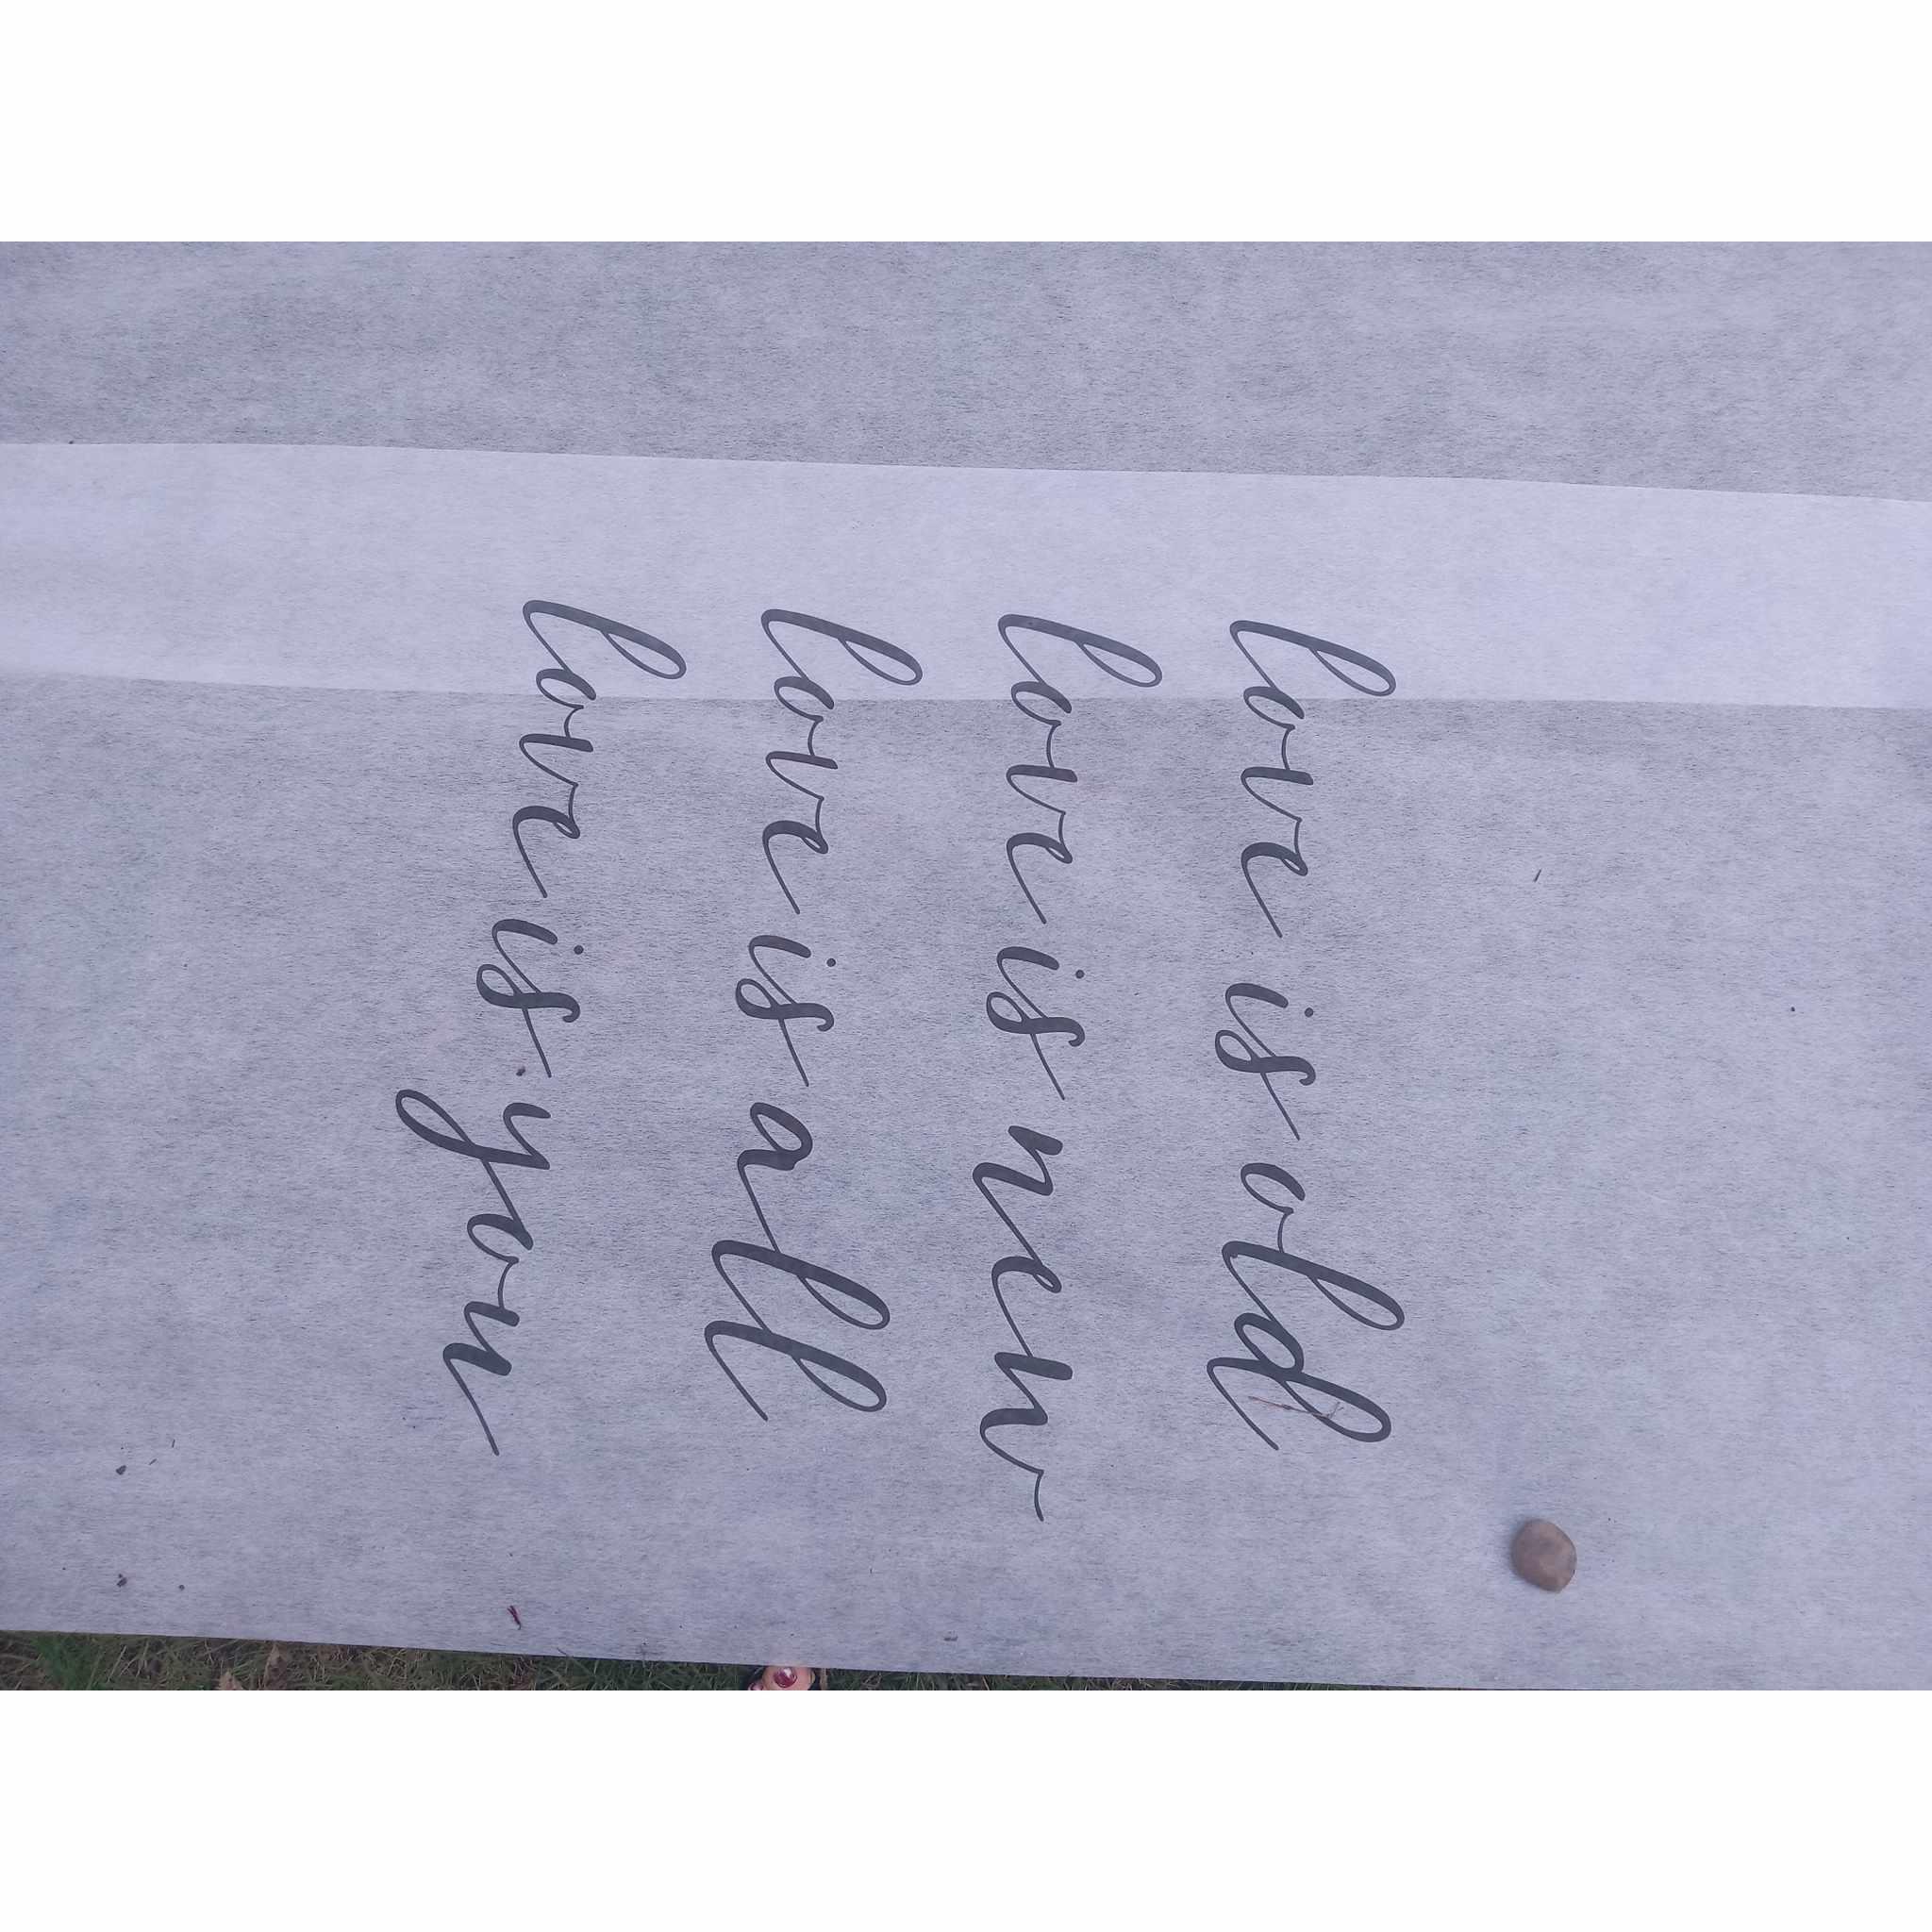 love is old
love is new
love is all
love is you